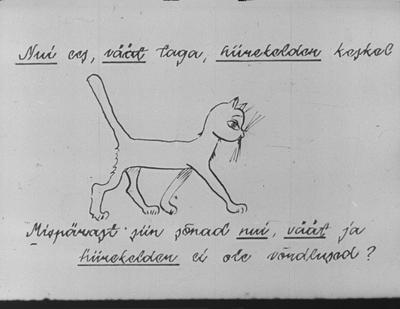 Nui ees, väät taga, hiirekelder keskel
Mispärast siin sõnad nui, väät ja
hiirekelder ei ole võrdlused?